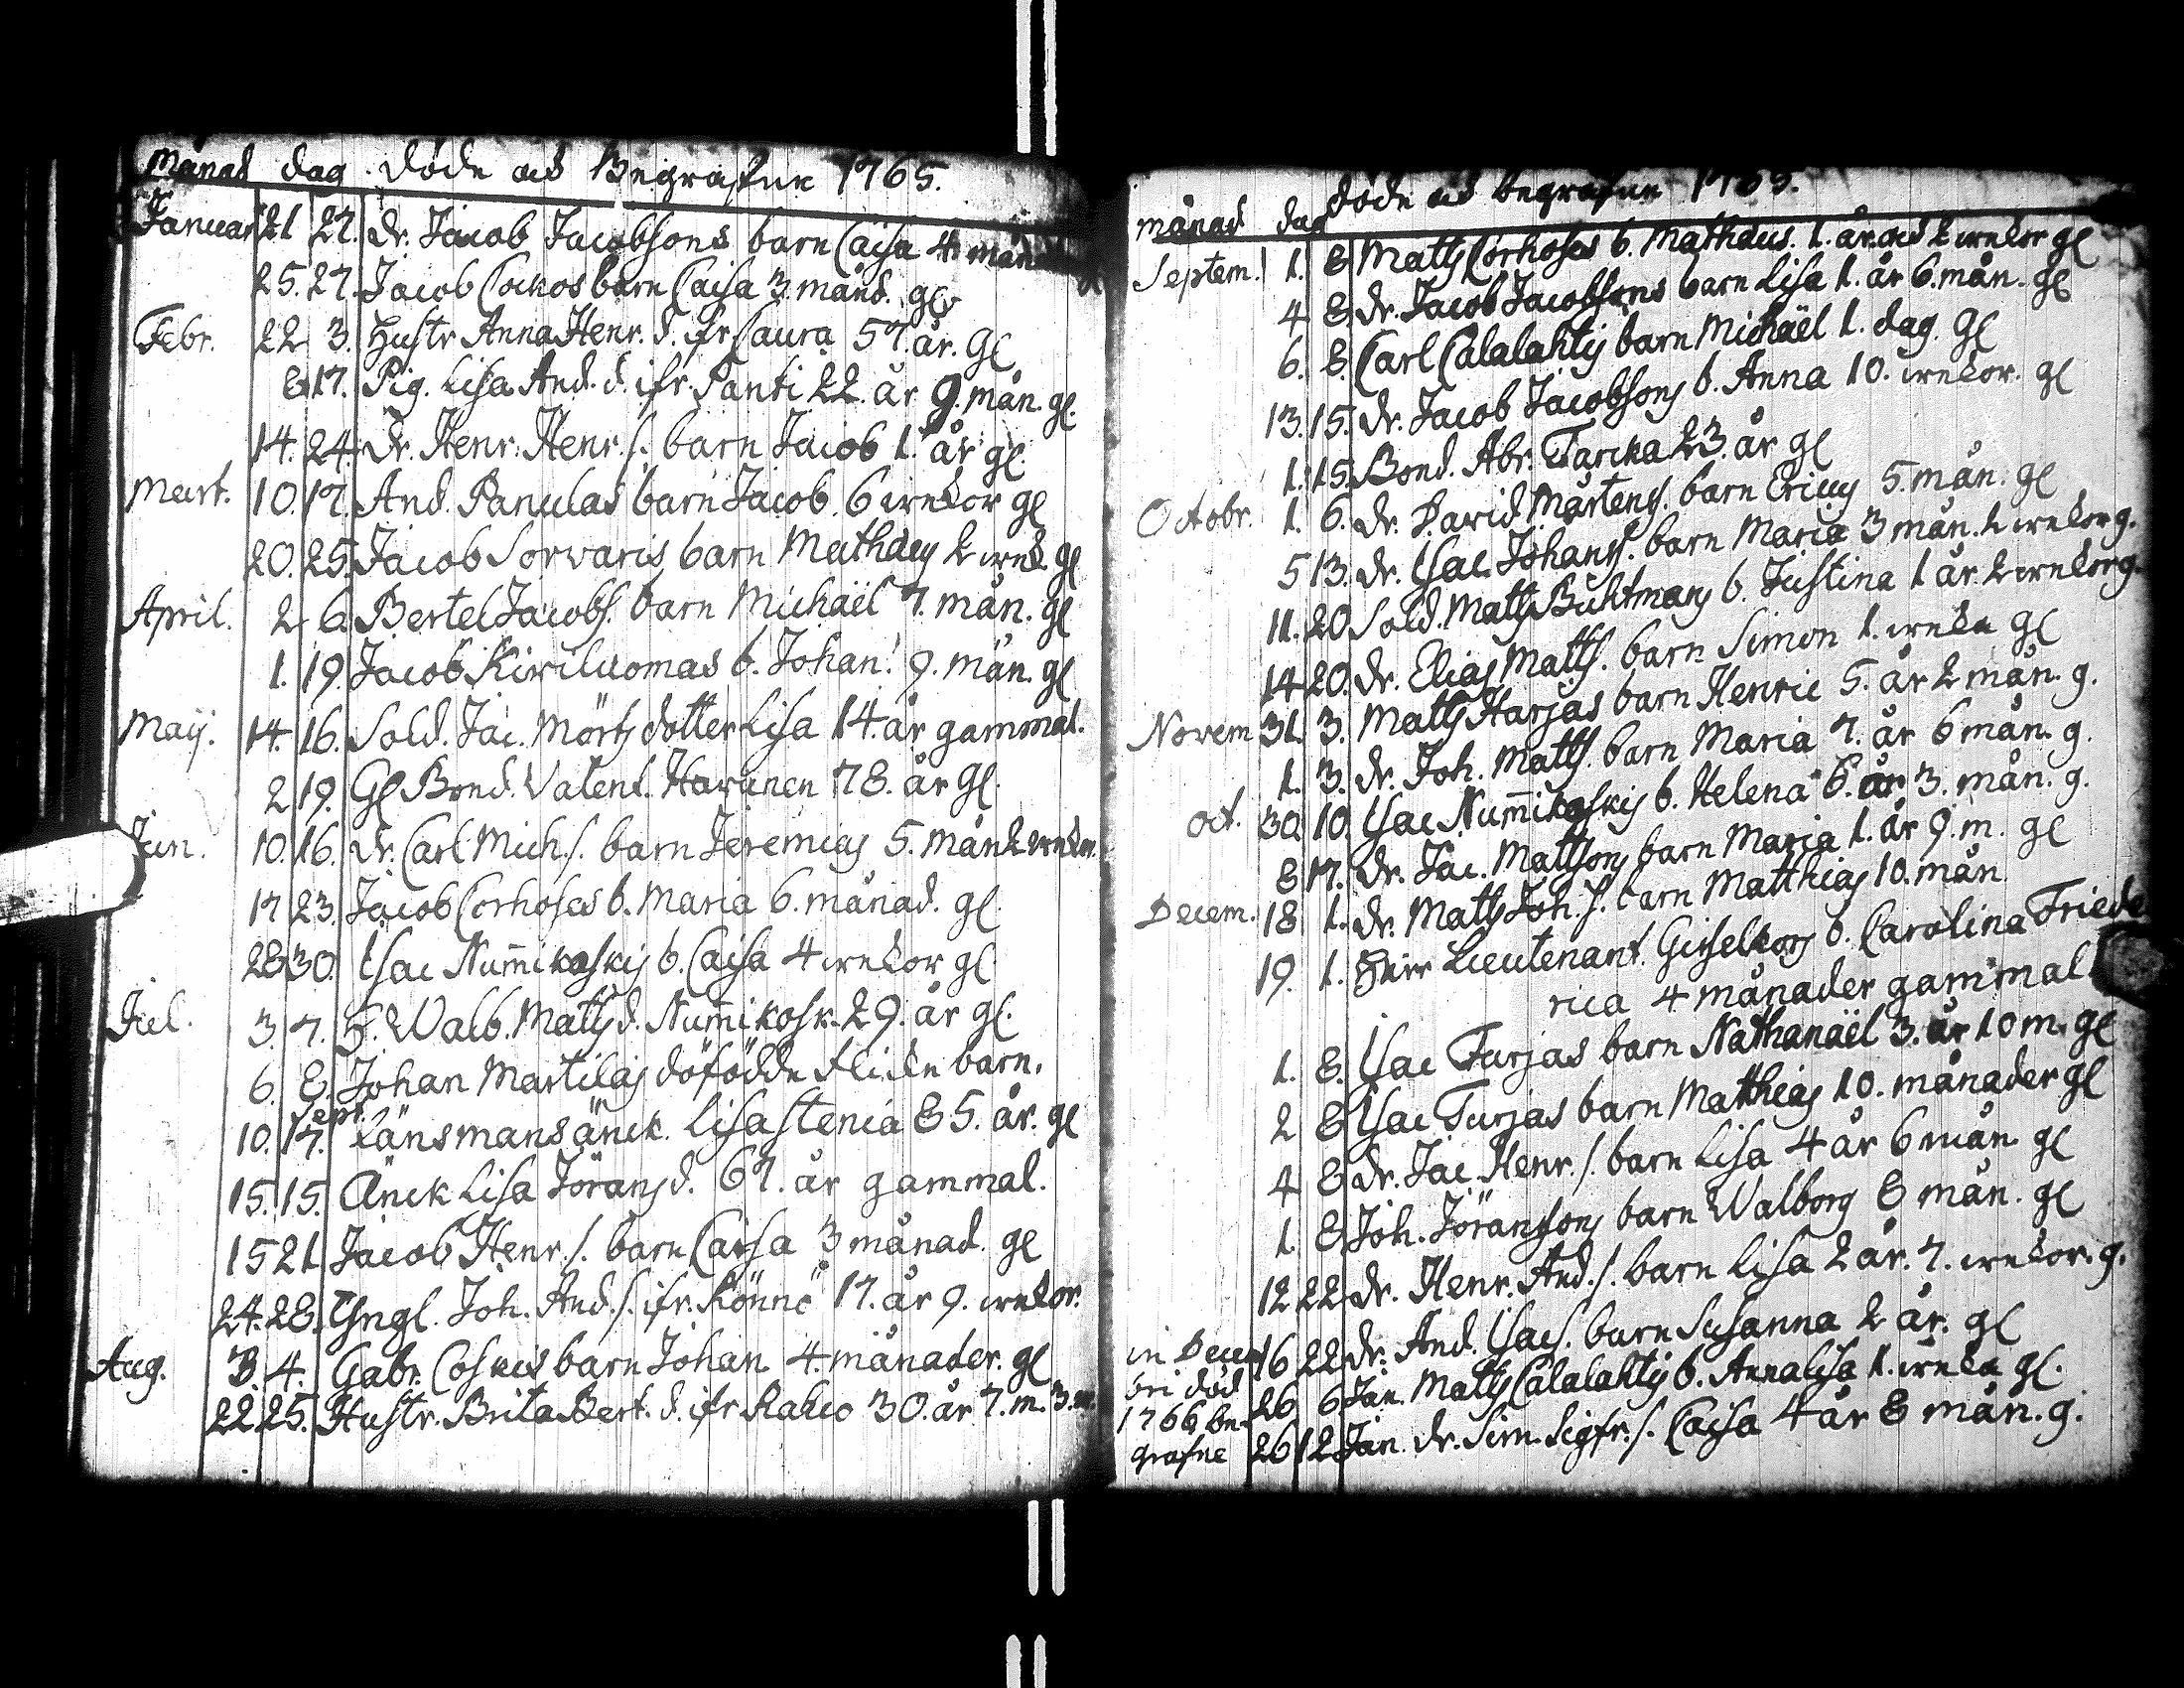 Månad dag. döde och Begrafne 1765.
Januar 21 27. dr. Jacob Jacobsons barn Caisa 4 mån
25. 27. Jacob Cockos barn Caisa 3. månd. gl
Febr. 22 3. Hustr Anna Henr. d. ifr Caura 57. år. gl
8 17. Pig. Lisa And. d. ifr. Panti 22. år 9. mån. gl.
14. 24. dr. Henr. Henr. s. barn Jacob 1. år gl.
Mart. 10. 17. And. Panulas barn Jacob. 6 weckor gl
20. 25. Jacob Sorvaris barn Mathæus 2 weck. gl
April. 2 6. Bertel Jacobs. barn Michaël 7. mån. gl
1. 19. Jacob Kiviluomas b. Johan. 9. mån. gl
Maij. 14. 16. Sold. Jac. Mörts dotter Lisa 14. år gammal.
2 19. Gl Bond. Valent. Harunen 78. år gl.
Jun. 10. 16. dr. Carl Mich. s. barn Jeremias 5. mån 2 weckor.
17 23. Jacob Corhosas b. Maria 6. månad. gl.
28 30. Isac Num̄ikoskis b. Caisa 4 weckor gl.
Jul. 3. 7. H. Walb. Matts d. Num̄ikosk. 29. år gl.
6. 8. Johan Martilas döfödde flicke barn.
Sept.
10. 17. Länsmans änck. Lisa Stenia 85. år. gl
15. 15. Änck Lisa Jörans d. 67. år gammal.
15 21. Jacob Henr. s. barn Caisa 3 månad. gl
24. 28. Yngl. Joh. And. s. ifr. Könnö 17. år 9. weckor.
Aug. 3. 4. Gabr. Coskis barn Johan 4. månader. gl
22. 25. Hustr. Brita Bert. d. ifr Raho 30. år 7. m. 3.
döde och begrafne 1765.
månad dag
Septem. 1. 8 Matts Corhosas b. Mathæus. 1. år och 2 weckor gl
4 8. dr. Jacob Jacobsons barn Lisa 1. år 6. mån. gl
6. 8. Carl Calalahtis barn Michäel 1. dag. gl
13. 15. dr. Jacob Jacobsons b. Anna 10. weckor. gl
1. 15. Bond. Abr. Tarcka 23. år gl
Octobr. 1. 6. dr. David Mårtens. barn Ericus 5. mån. gl
5 13. dr. Isac Johans. barn Maria 3 mån. 2 weckor g.
11. 20. Sold. Matts Buhtmans b. Justina 1 år 2 weckor g.
14 20. dr. Elias Matts. barn Simon 1. wecka gl
Novem 31. 3. Matts Harjas barn Henric 5. år 2 mån. g.
1. 3. dr. Joh. Matts. barn Maria 7. år 6 mån. g.
oct. 30 10. Isac Num̄ikoskis b. Helena 6. år 3. mån. g.
8 17. dr. Jac. Mattsons barn Maria 1. år 9. m. gl
Decem. 18 1. dr. Matts Joh. s. barn Matthias 10. mån
19. 1. Herr Lieutenant. Gisselkors b. Carolina Friede
rica 4 månader gammal
1. 8. Isac Turjas barn Nathanaël 3. år 10 m. gl
2 8 Isac Turjas barn Matthias 10. månader gl
4 8 dr. Jac Henr. s. barn Lisa 4 år 6 mån gl
1. 8 Joh. Jöranssons barn Walborg 8 mån. gl
12 22 dr. Henr. And. s. barn Lisa 2 år. 7. weckor. g.
in Decem 16 22 dr. And. Isacs. barn Susanna 2 år. gl
bri död 26 6 Jan. Matts Calalahtis b. Annalisa 1. wecka gl.
1766 be-
grafne 26 12 Jan. dr. Sim. Sigfr. s. Caisa 4 år 8 mån. g.